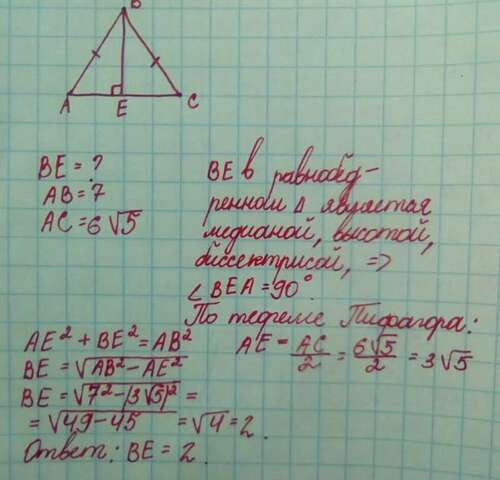 B
A E C
BE = ?
AB = 7
AC = 6√5
BE в равнобед-
ренном Δ является
медианой, высотой,
биссектрисой, =>
∠BEA = 90°.
По теореме Пифагора:
AE² + BE² = AB²
AE = AC/2 = 6√5/2 = 3√5
BE = √AB² - AE²
BE = √7² - (3√5)² =
= √49 - 45 = √4 = 2.
Ответ: BE = 2.